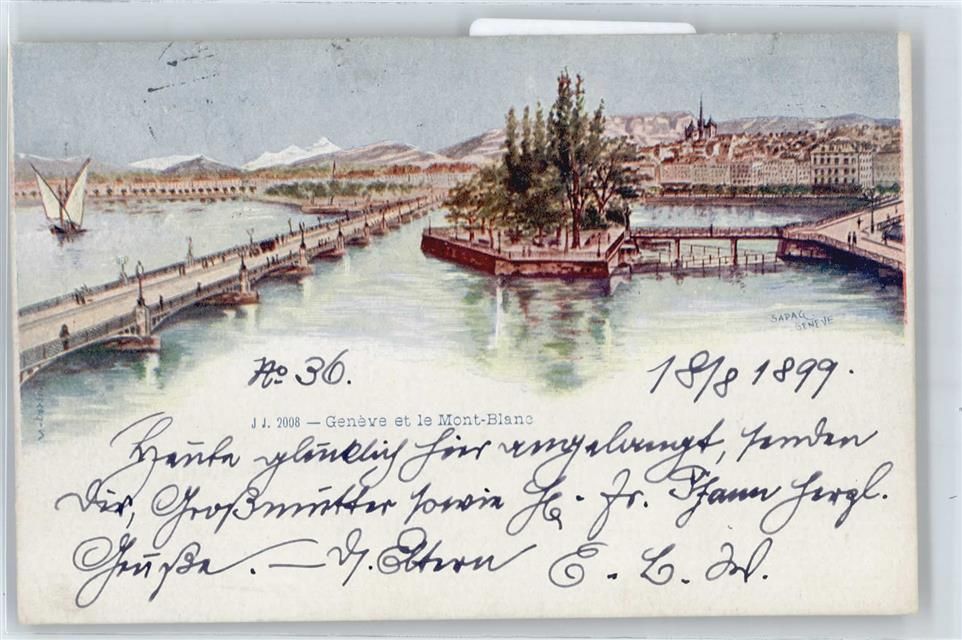 SAPAG
GENÈVE
No 36.
18/8 1899.
JJ. 2008 — Genève et le Mont-Blanc
Heute glücklich hier angelangt, senden
Dir, Großmutter sowie Fr. Pfann herzl.
Grüße. — D. Eltern E. L. W.